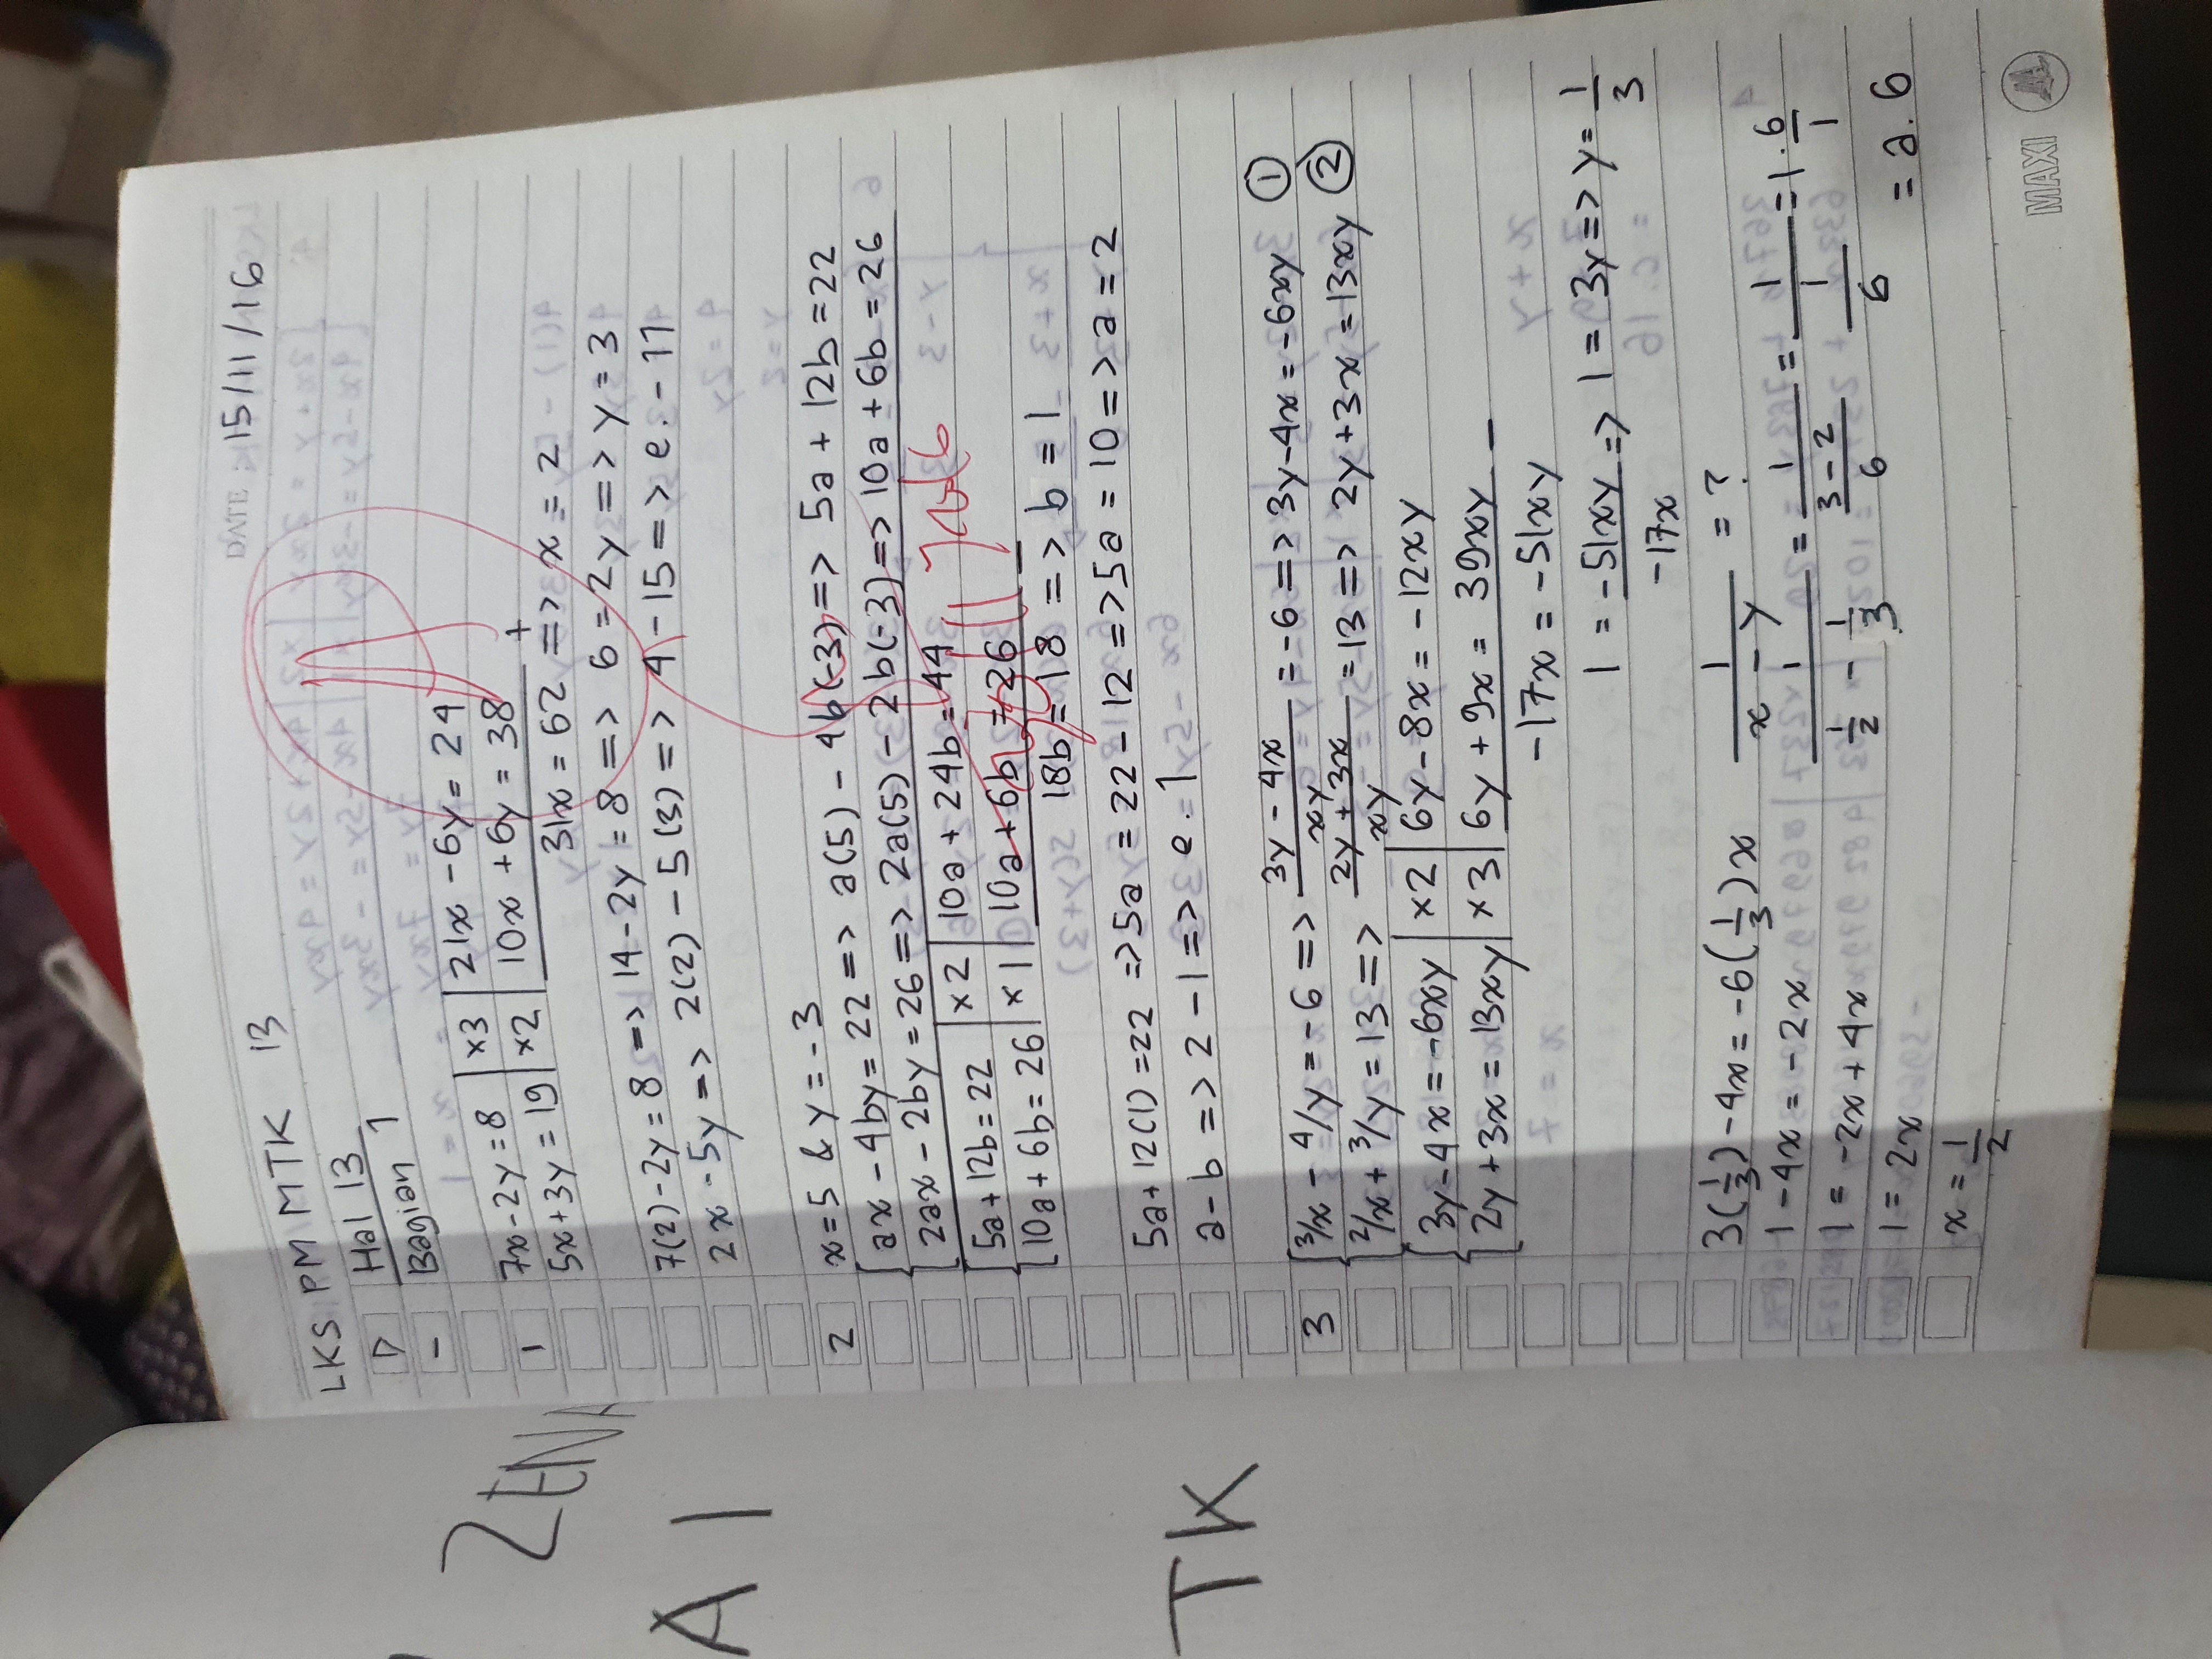 DATE 15/11/16
LKS PM MTK 13
Hal 13
- Bagian 1
1 7x - 2y = 8 | x3 | 21x - 6y = 24
5x + 3y = 19 | x2 | 10x + 6y = 38 +
31x = 62 => x = 2
7(2) - 2y = 8 => 14 - 2y = 8 => 6 = 2y => y = 3
2x - 5y => 2(2) - 5(3) => 4 - 15 => e. -11
2 x = 5 & y = -3
ax - 4by = 22 => a(5) - 4b(-3) => 5a + 12b = 22
2ax - 2by = 26 => 2a(5) - 2b(-3) => 10a + 6b = 26
5a + 12b = 22 | x2 | 10a + 24b = 44
10a + 6b = 26 | x1 | 10a + 6b = 26 -
18b = 18 => b = 1
5a + 12(1) = 22 => 5a = 22 - 12 => 5a = 10 => a = 2
a - b => 2 - 1 => e. 1
3 3/x - 4/y = -6 => 3y - 4x / xy = -6 => 3y - 4x = -6xy ①
2/x + 3/y = 13 => 2y + 3x / xy = 13 => 2y + 3x = 13xy ②
3y - 4x = -6xy | x2 | 6y - 8x = -12xy
2y + 3x = 13xy | x3 | 6y + 9x = 39xy -
-17x = -51xy
1 = -51xy / -17x => 1 = 3y => y = 1/3
3(1/3) - 4x = -6(1/3)x
1/x - y = ?
1 - 4x = -2x
1 / 1/2 - 1/3 = 1 / 3-2/6 = 1 / 1/6 = 1 . 6/1
1 = -2x + 4x
1 = 2x
= a. 6
x = 1/2
MAXI
ZEN
A I
TK